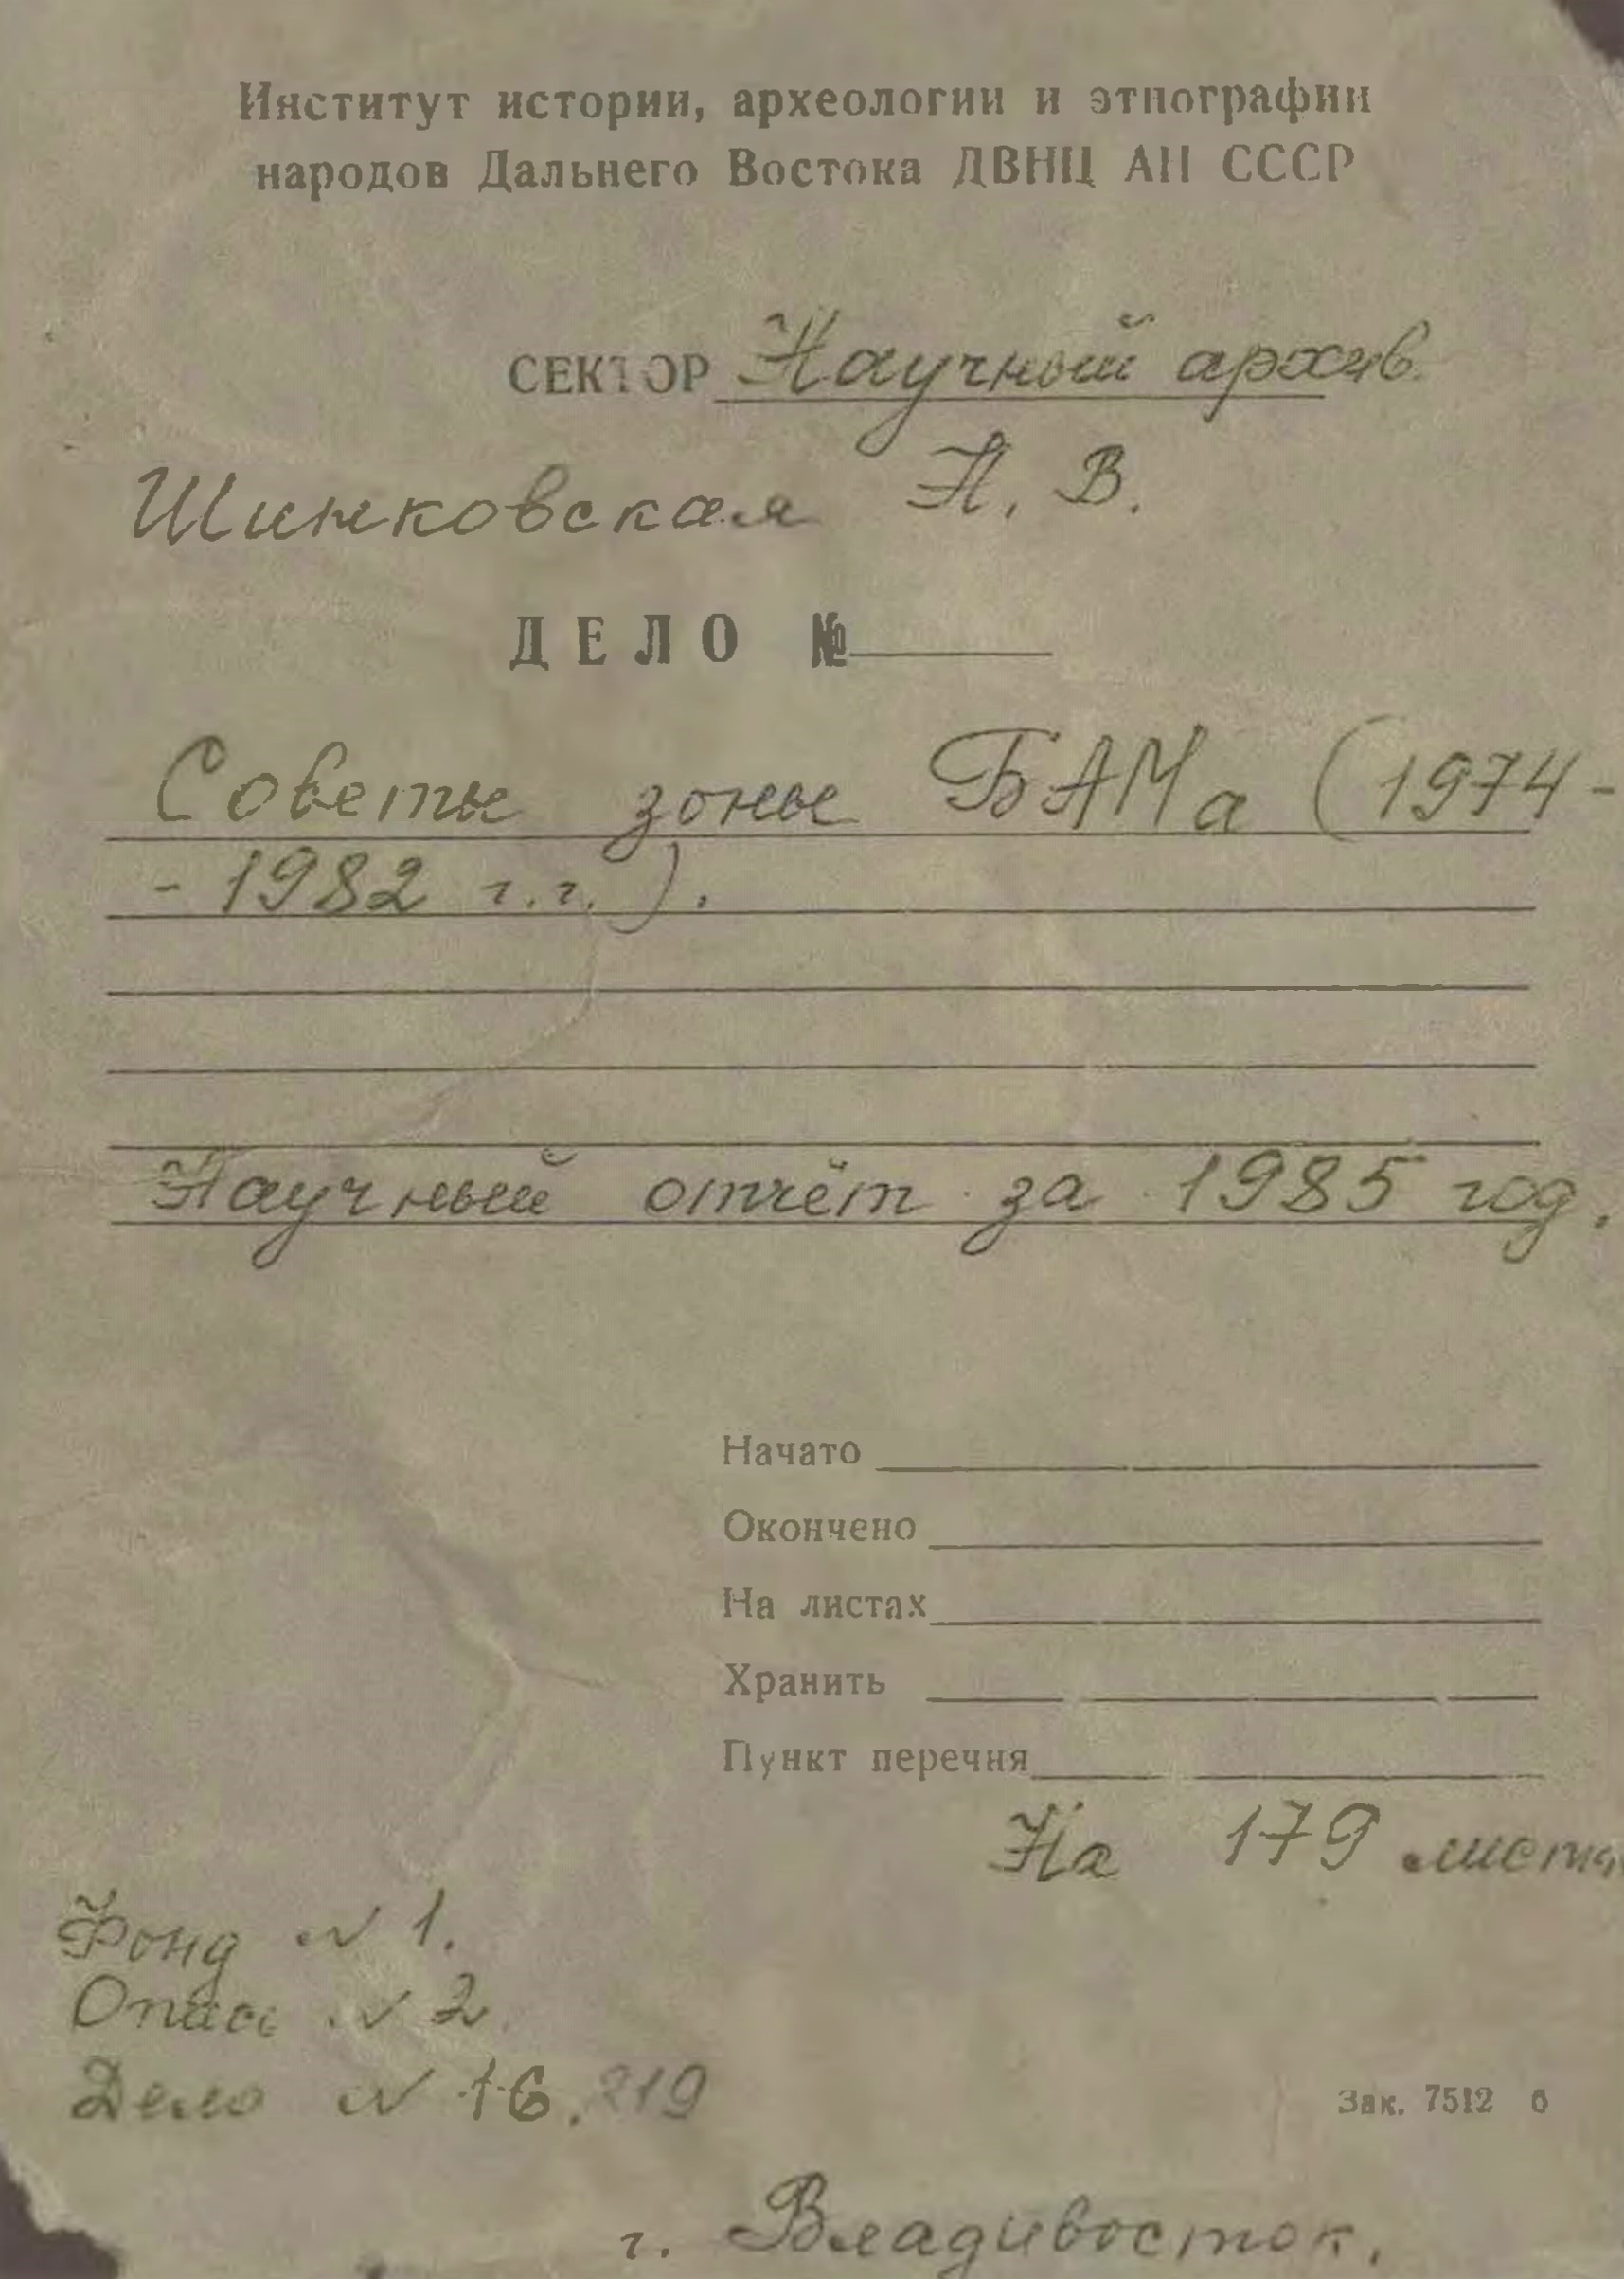 Институт истории, археологии и этнографии
народов Дальнего Востока ДВНЦ АН СССР
СЕКТОР Научный архив.
Шинковская Н. В.
ДЕЛО №
Советы зоны БАМа (1974-
- 1982 г.г.).
Научный отчёт за 1985 год.
Начато
Окончено
На листах
Хранить
Пункт перечня
На 179 листа
Фонд № 1.
Опись № 2.
Дело № 16. 219
Зак. 7512 б
г. Владивосток.